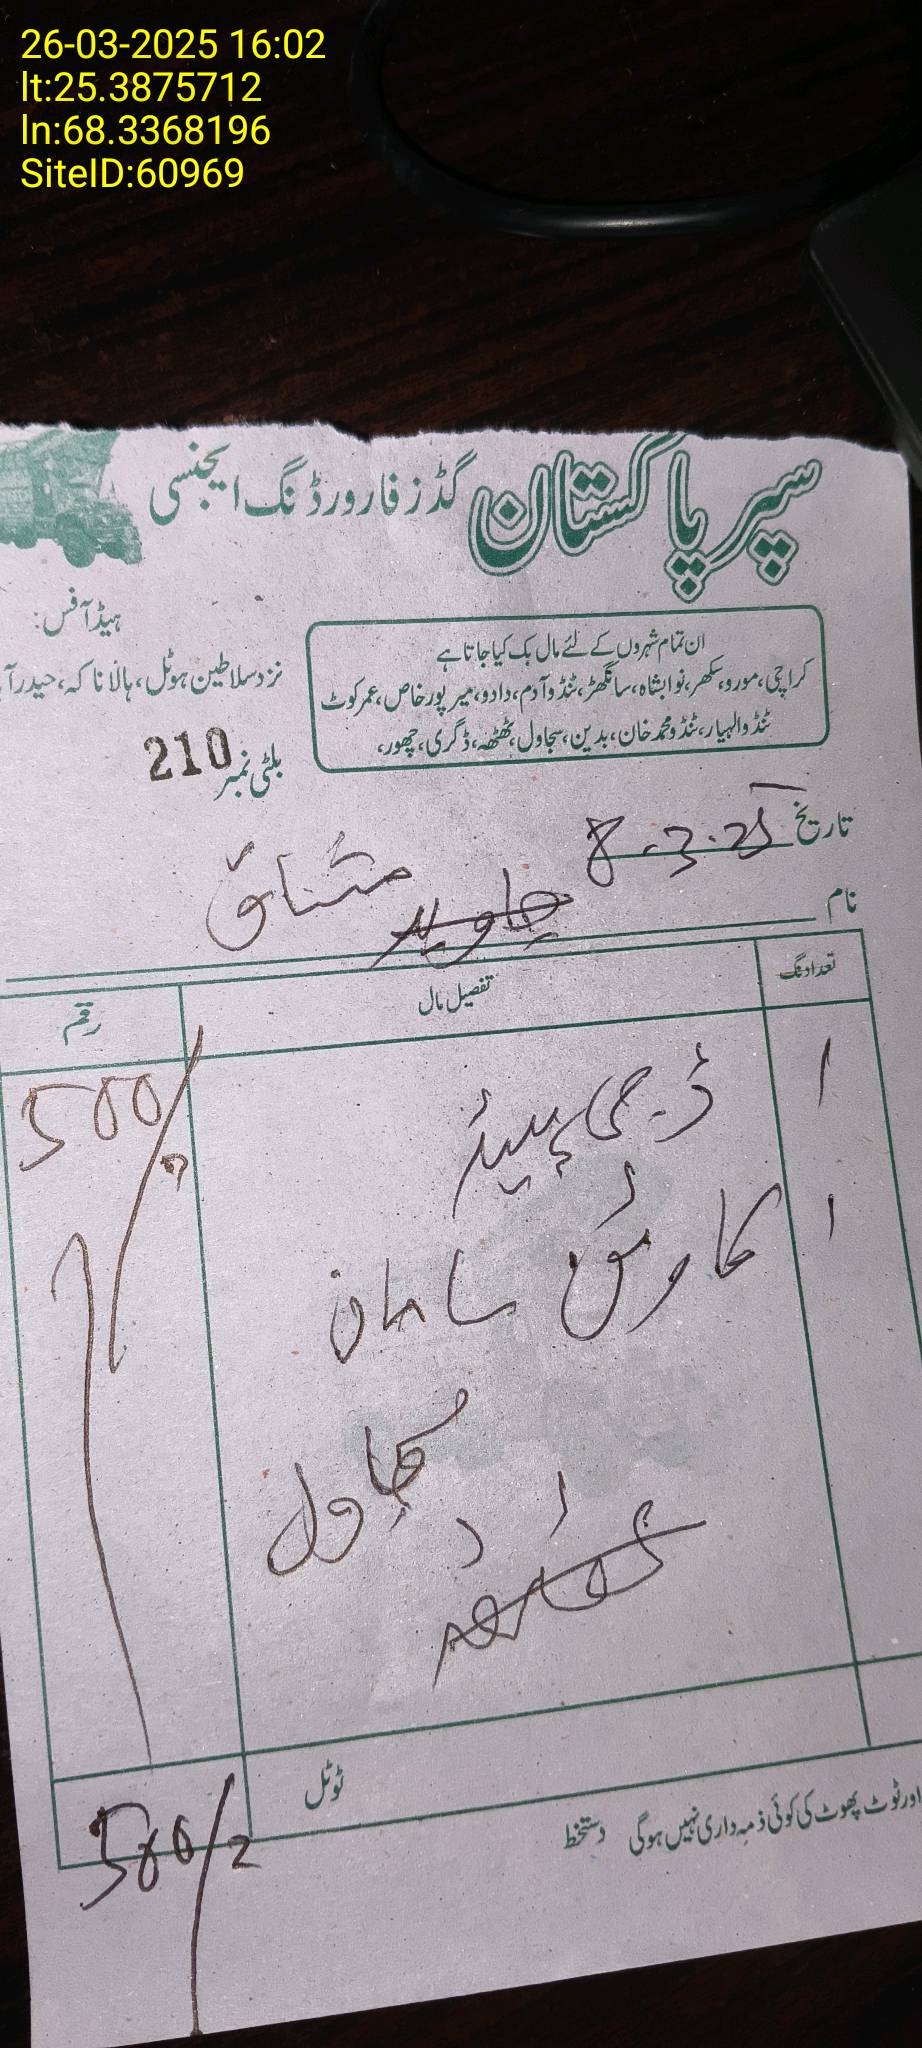 26-03-2025 16:02
lt:25.3875712
ln:68.3368196
SiteID:60969
سپر پاکستان گڈز فارورڈنگ ایجنسی
ہیڈ آفس:
نزد سلاطین ہوٹل، ہالا ناکہ، حیدرآ
ان تمام شہروں کے لئے مال بک کیا جاتا ہے
کراچی، مورو، سکھر، نوابشاہ، سانگھڑ، ٹنڈو آدم، دادو، میرپور خاص، عمر کوٹ
ٹنڈو الہیار، ٹنڈو محمد خان، بدین، سجاول، ٹھٹھہ، ڈگری، چھور،
بلٹی نمبر 210
تاریخ 8.3.25
نام جاوید مشتاق
تعداد نگ تفصیل مال رقم
1 ڈ.جی 500/
1 سامان
سجاول
ٹوٹل 500/
اور ٹوٹ پھوٹ کی کوئی ذمہ داری نہیں ہوگی دستخط